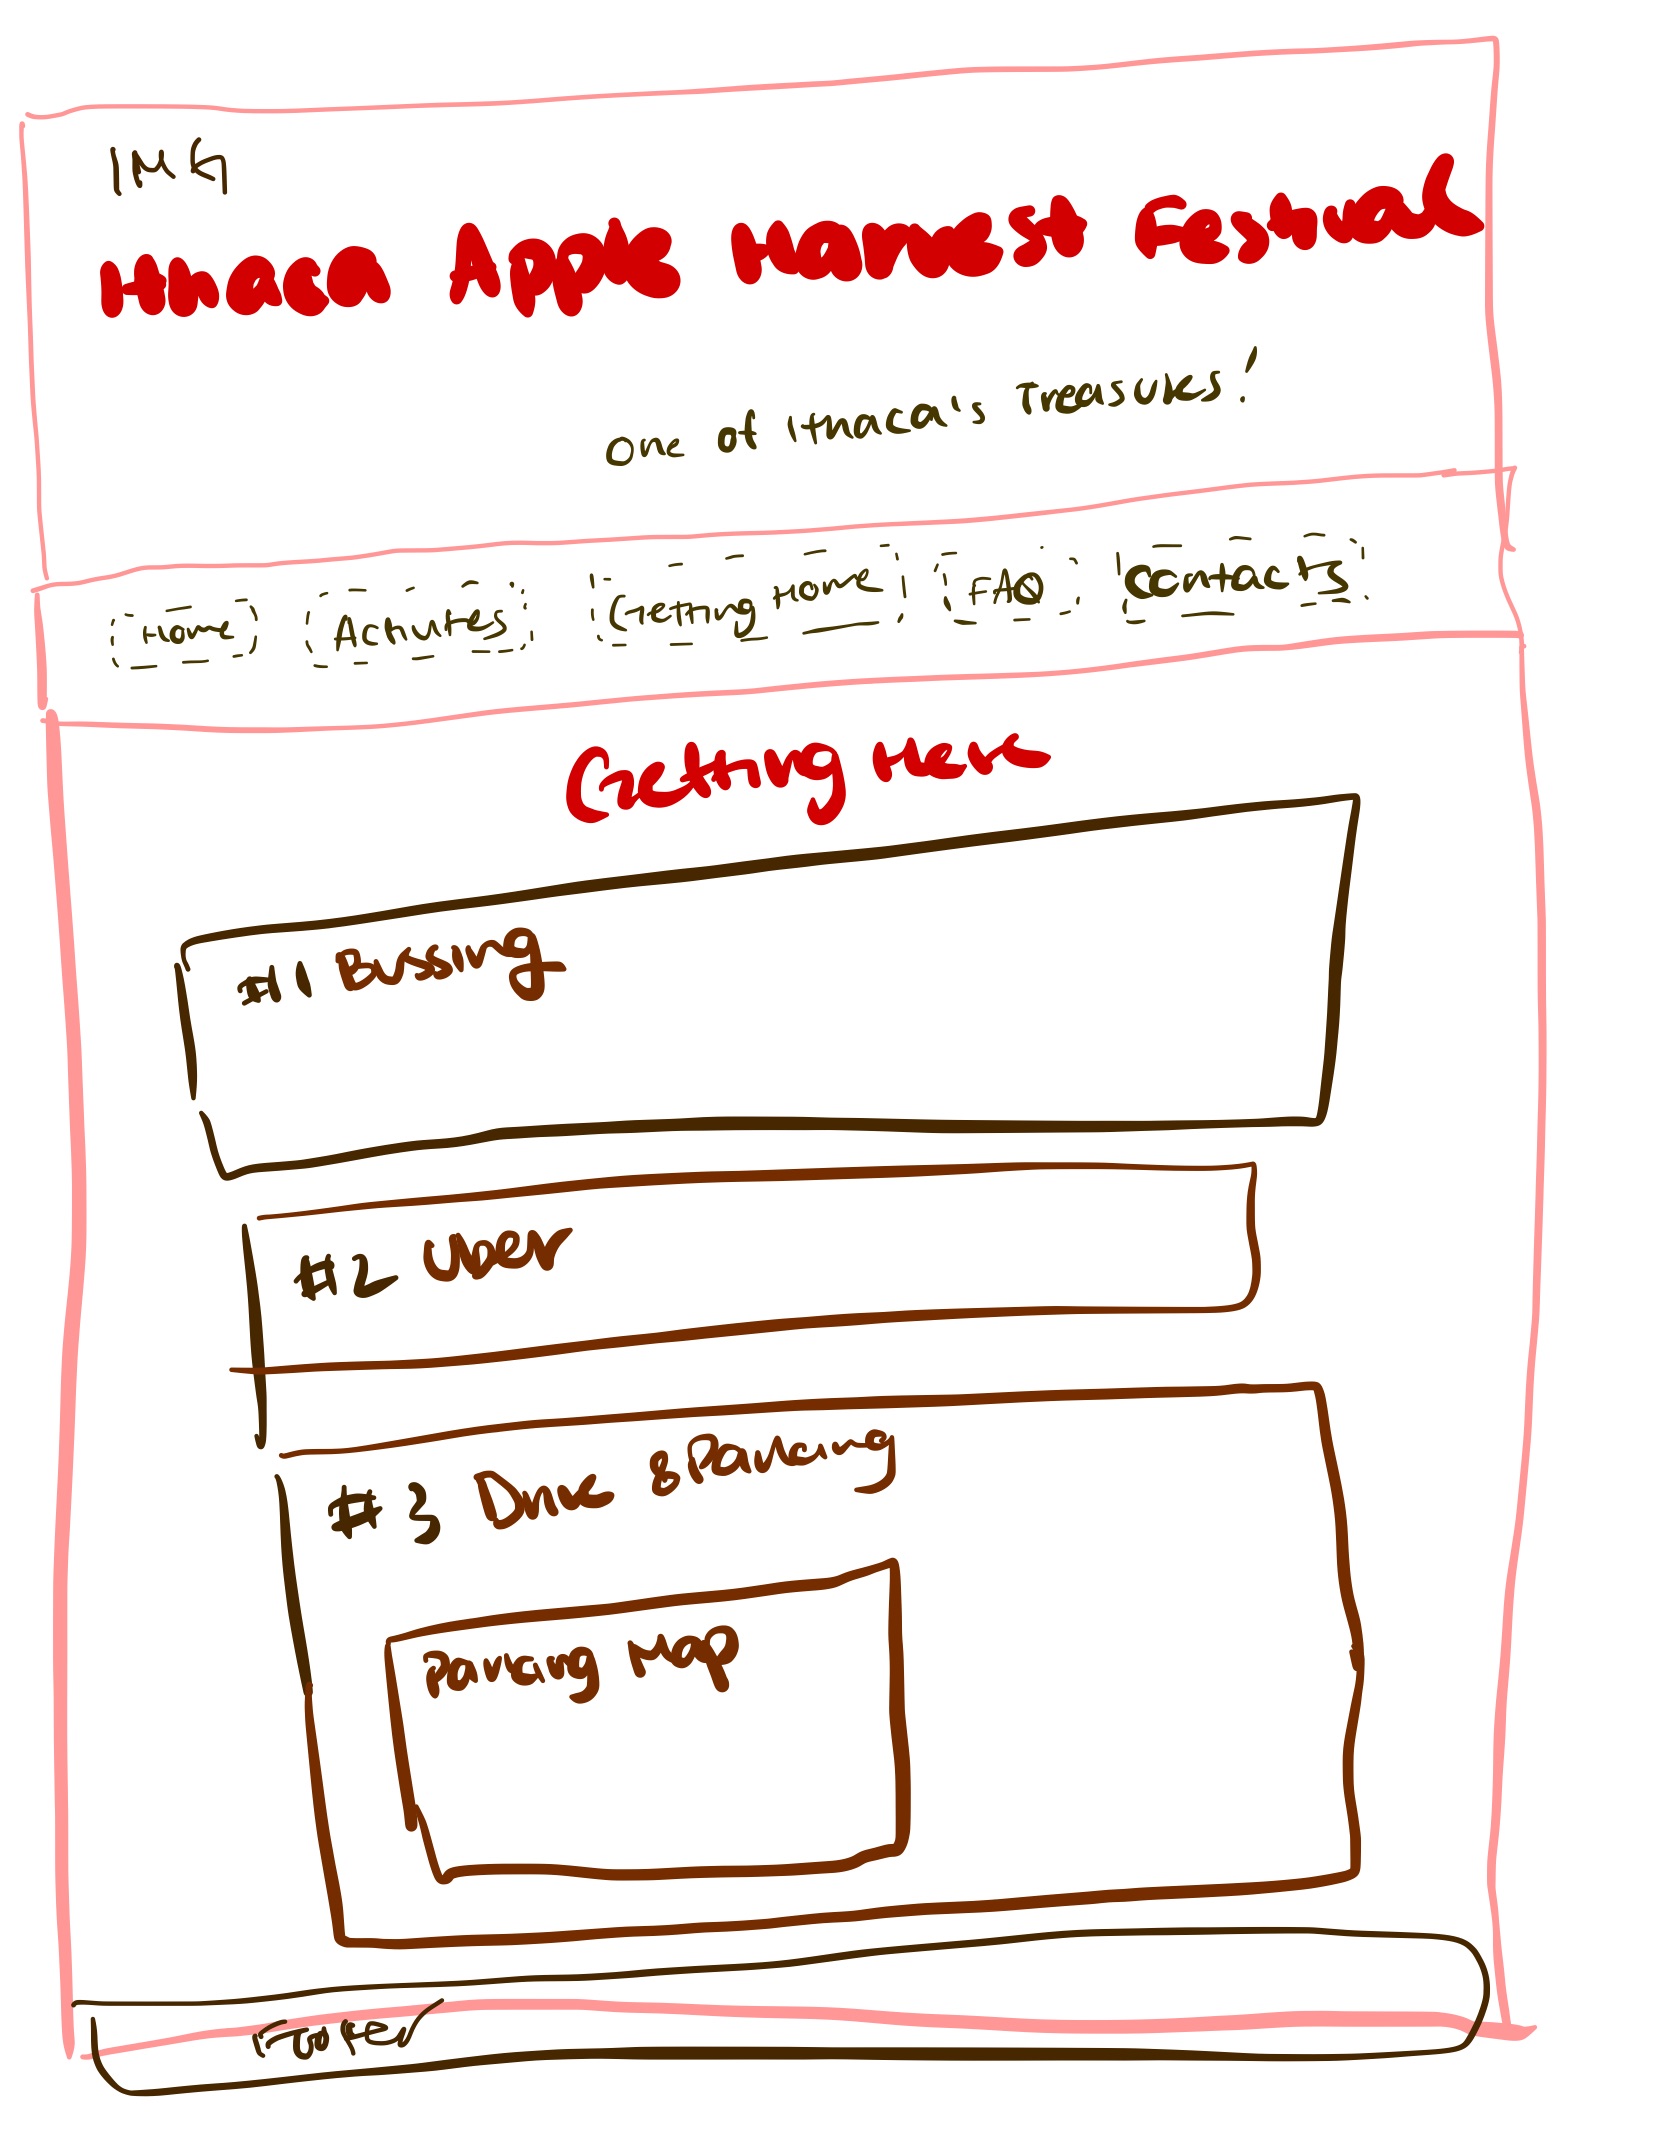 IMG
Ithaca Apple Harvest Festival
One of Ithaca's Treasures!
Home Activites Getting Home FAQ Contacts
Getting Here
#1 Bussing
#2 Uber
#3 Drive & Parking
Parking Map
Footer